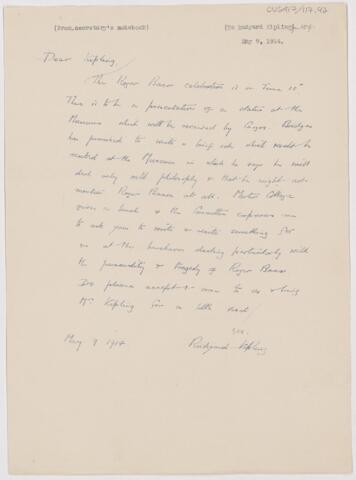 CUSA93/117.92
(From secretary's notebook) (To Rudyard Kipling
May 9, 1914.
Dear Kipling,
The Roger Bacon celebration is on June 10th
This is to be a presentation of a statue at the
Museum which will be received by Curzon. Bridges
has promised to write a brief ode which would be
recited at the Museum in which he says he will
deal only with philosophy & that he might not
mention Roger Bacon at all. Merton College
gives a lunch & the Committee empowers me
to ask you to write & recite something for
us at the luncheon dealing particularly with
the personality & tragedy of Roger Bacon
Do please accept & come to us & bring
Mrs Kipling for a little visit
May 9 1914
Rudyard Kipling